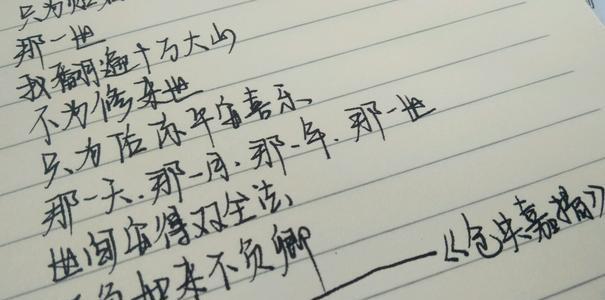 只为
那一世
我翻遍十万大山
不为修来世
只为佑你平安喜乐
那一天.那一月.那一年.那一世
世间安得双全法
不负如来不负卿——《仓央嘉措》